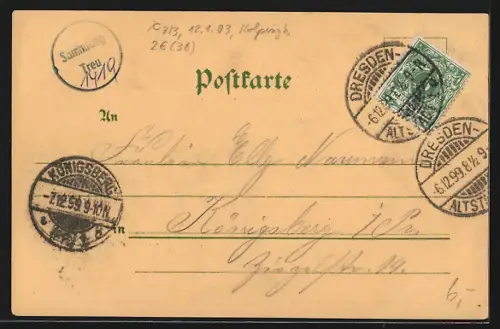 12.1.03,
2€ (3€)
Sammlung
Treu
1419
Postkarte
DRESDEN-
6.12.99. 8½ 9-N.
ALTST.
An
Fräulein Elly Naumann
DRESDEN-
6.12.99. 8½ 9-
ALTST.
KÖNIGSBERG
7.12.99. 9-10 N.
in Königsberg i/Pr.
Ziegelstr. 19.
6,-